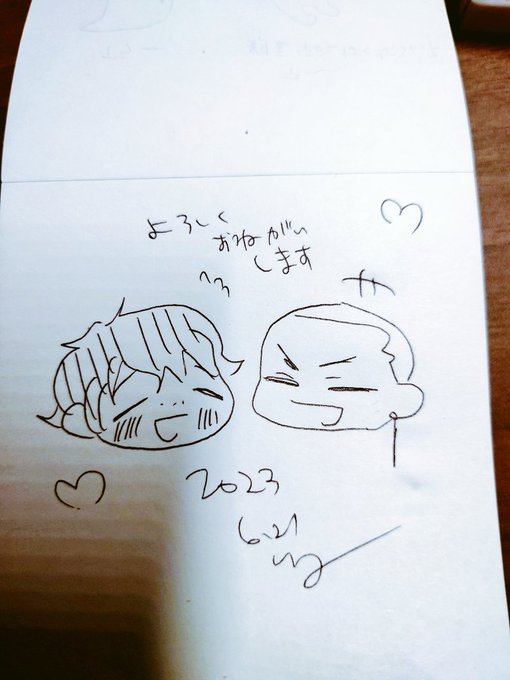 よろしく
おねがい
します
2023
6.21